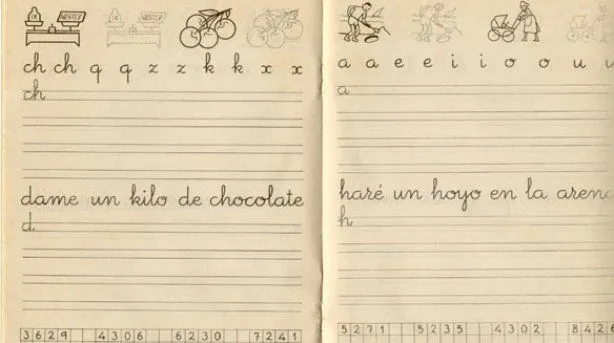 1K NESTLE 1K NESTLE
ch ch q q z z k k x x
ch
dame un kilo de chocolate
d
3 6 2 9 4 3 0 6 6 2 3 0 7 2 4 1
a a e e i i o o u u
a
haré un hoyo en la arena
h
5 2 7 1 5 2 3 5 4 3 0 2 8 4 2 6